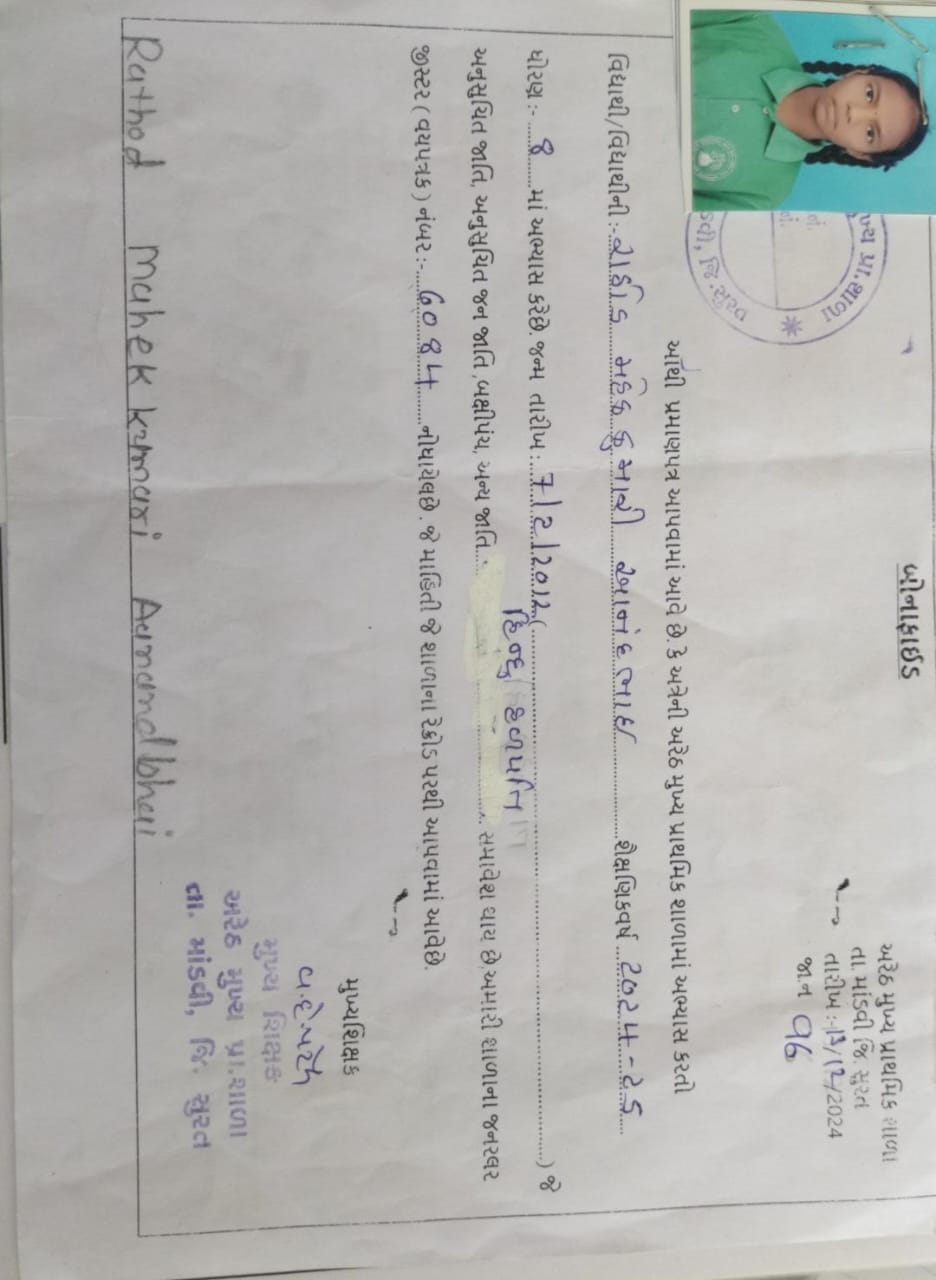 બોનાફાઈડ
અરેઠ મુખ્ય પ્રાથમિક શાળા
તા. માંડવી જિ. સુરત
તારીખ :-13/12/2024
જા.ન 96
આથી પ્રમાણપત્ર આપવામાં આવે છે. કે અત્રેની અરેઠ મુખ્ય પ્રાથમિક શાળામાં અભ્યાસ કરતી
વિદ્યાર્થી/વિદ્યાર્થીની:- રાઠોડ મહેકકુમારી આનંદભાઇ શૈક્ષણિકવર્ષ 2024-25
ધોરણ:- 8 માં અભ્યાસ કરેછે. જન્મ તારીખ: 7/2/2012 (..........) જે
હિન્દુ હળપતિ
અનુસુચિત જાતિ, અનુસુચિત જન જાતિ, બક્ષીપંચ, અન્ય જાતિ સમાવેશ થાય છે.અમારી શાળાના જનરલર
જીસ્ટર ( વયપત્રક ) નંબર:- 6084 નોંધાયેલછે. જે માહિતી જે શાળાના રેકોર્ડ પરથી આપવામાં આવેછે.
મુખ્યશિક્ષક
મુખ્ય શિક્ષક
અરેઠ મુખ્ય પ્રા.શાળા
તા. માંડવી, જિ. સુરત
Rathod Mahekkumari Aanandbhai